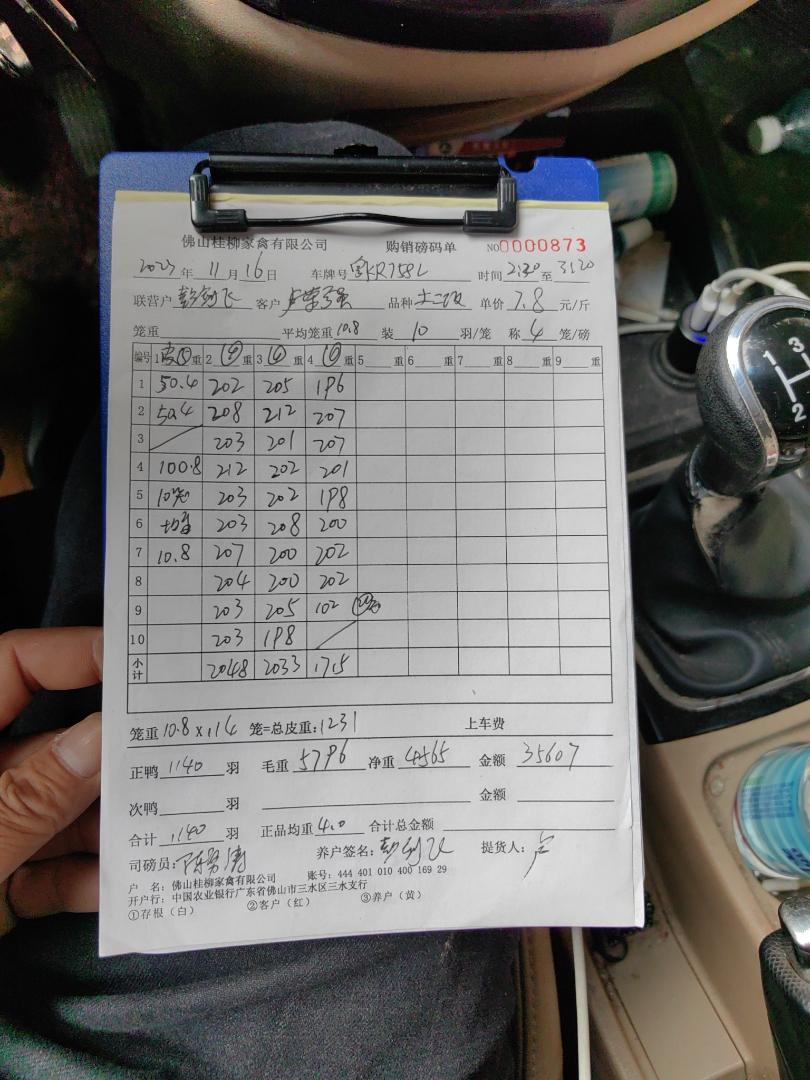 佛山桂柳家禽有限公司 购销磅码单 NO0000873
2023年11月16日 车牌号 KR758L 时间2:30至3:20
联营户 彭剑飞 客户 卢荣强 品种 土二级 单价7.8元/斤
笼重 平均笼重10.8 装10羽/笼 称4笼/磅
编号 1 重 2 ④ 重 3 ④ 重 4 ④ 重 5 重 6 重 7 重 8 重 9 重
1 50.4 202 205 196
2 50.4 208 212 207
3 203 201 207
4 100.8 212 202 201
5 203 202 198
6 203 208 200
7 10.8 207 200 202
8 204 200 202
9 203 205 102
10 203 198
小计 2048 2033 1715
笼重10.8×114 笼=总皮重:1231 上车费
正鸭1140羽 毛重5796 净重4565 金额35607
次鸭 羽 金额
合计1140羽 正品均重4.0 合计总金额
司磅员: 养户签名:彭剑飞 提货人:卢
户 名:佛山桂柳家禽有限公司 账号:444 401 010 400 169 29
开户行:中国农业银行广东省佛山市三水区三水支行
①存根(白) ②客户(红) ③养户(黄)
1 3
2